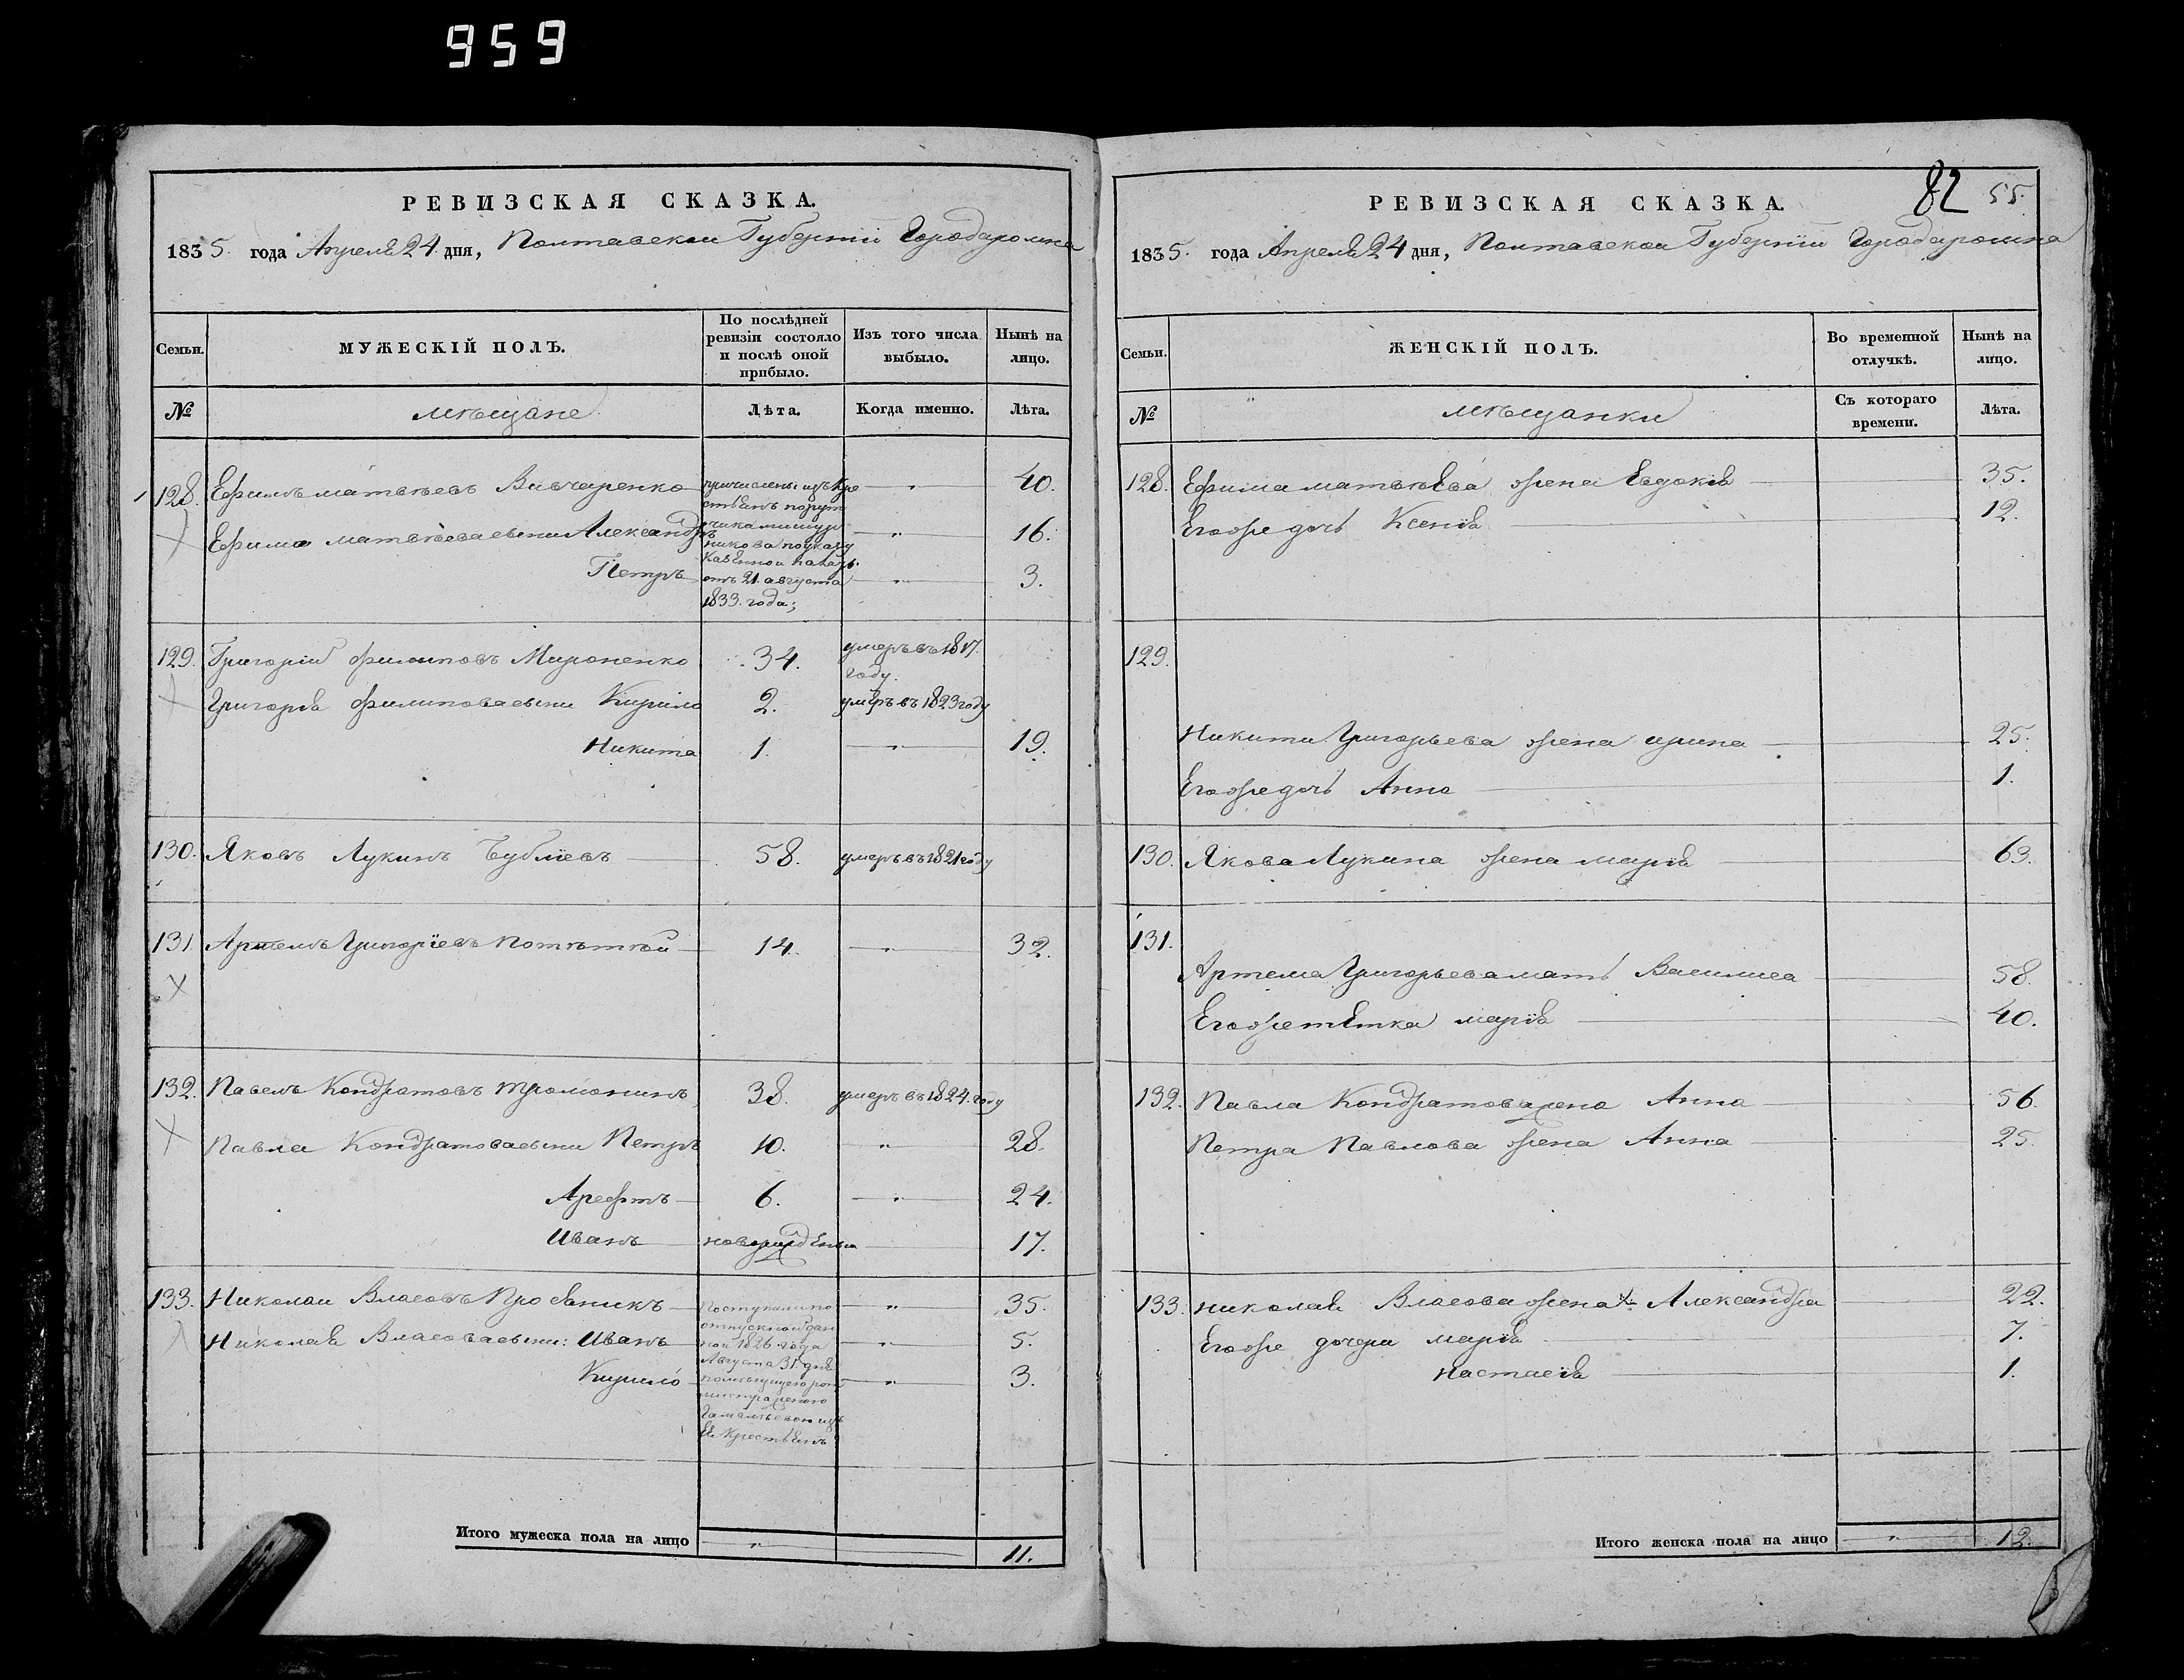 959
РЕВИЗСКАЯ СКАЗКА.
1835. года Апреля 24 дня, Полтавской Губернии Города
Семьи.
МУЖЕСКІЙ ПОЛЪ.
По послѣдней ревизіи состояло и послѣ оной прибыло.
Изъ того числа выбыло.
Нынѣ на лицо.
№
мѣщане
Лѣта.
Когда именно.
Лѣта.
128. Ефимъ матвѣевъ Вивчаренко причислены изъ кре " 40.
стьянъ поруч
Ефима матвѣева сыни Александръ чика " 16.
никова по указу
Казенной палаты
Петръ отъ 21. августа " 3.
1833. года;
129. Григорій филиповъ Мироненко 34. умеръ въ 1817. году.
Григорія филипова сыни Кирило 2. умеръ въ 1823 году
Никита 1. " 19.
130. Яковъ Лукинъ Бублиевъ 58. умеръ въ 1821 году
131. Артемъ Григоріевъ 14. " 32.
132. Павелъ Кондратовъ 38. умеръ въ 1824. году
Павла Кондратова сыни Петръ 10. " 28.
Арефтъ 6. " 24.
Иванъ новорожденъ 17.
133. Николаи Власовъ Поступили по " 35.
отпускной дан
Николая Власова сыни: Иванъ ной 1826. года " 5.
Августа 31. дня
Кирило " 3.
ея крестьянъ
Итого мужеска пола на лицо " 11.
82 55.
РЕВИЗСКАЯ СКАЗКА.
1835. года Апреля 24 дня, Полтавской Губерніи Города
Семьи.
ЖЕНСКІЙ ПОЛЪ.
Во временной отлучкѣ.
Нынѣ на лицо.
№
мѣщанки
Съ котораго времени.
Лѣта.
128. Ефима матвѣева жена Евдокія 35.
Егоже дочь Ксенія 12.
129.
Никити Григорьева жена ирина 25.
Егоже дочь Анна 1.
130. Якова Лукина жена марія 63.
131.
Артема Григорьева мать Василиса 58.
Егоже тетка марія 40.
132. Павла Кондратова жена Анна 56.
Петра Павлова жена Анна 25.
133. николая Власова жена Александра 22.
Егоже дочери марія 7.
настасія 1.
Итого женска пола на лицо " 12.